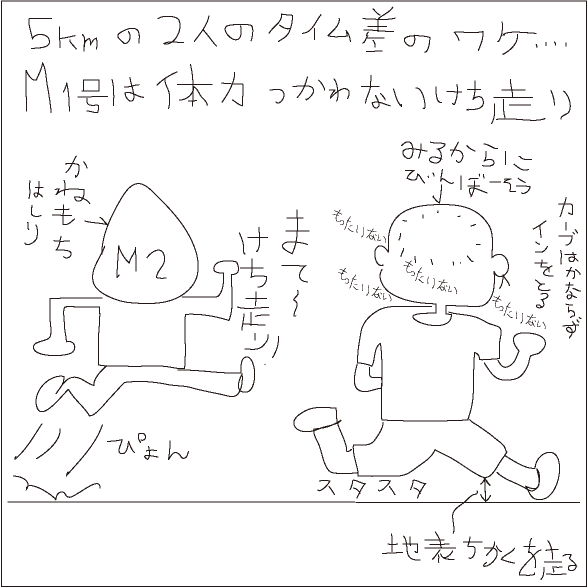 5kmの2人のタイム差のワケ....
M1号は体力つかわないけち走り
かねもち
はしり
M2
まて~
けち走り!
ぴょん
みるからに
びんぼーそう
もったいない
もったいない
もったいない
もったいない
カーブはかならず
インをとる
スタスタ
地表ちかくを走る